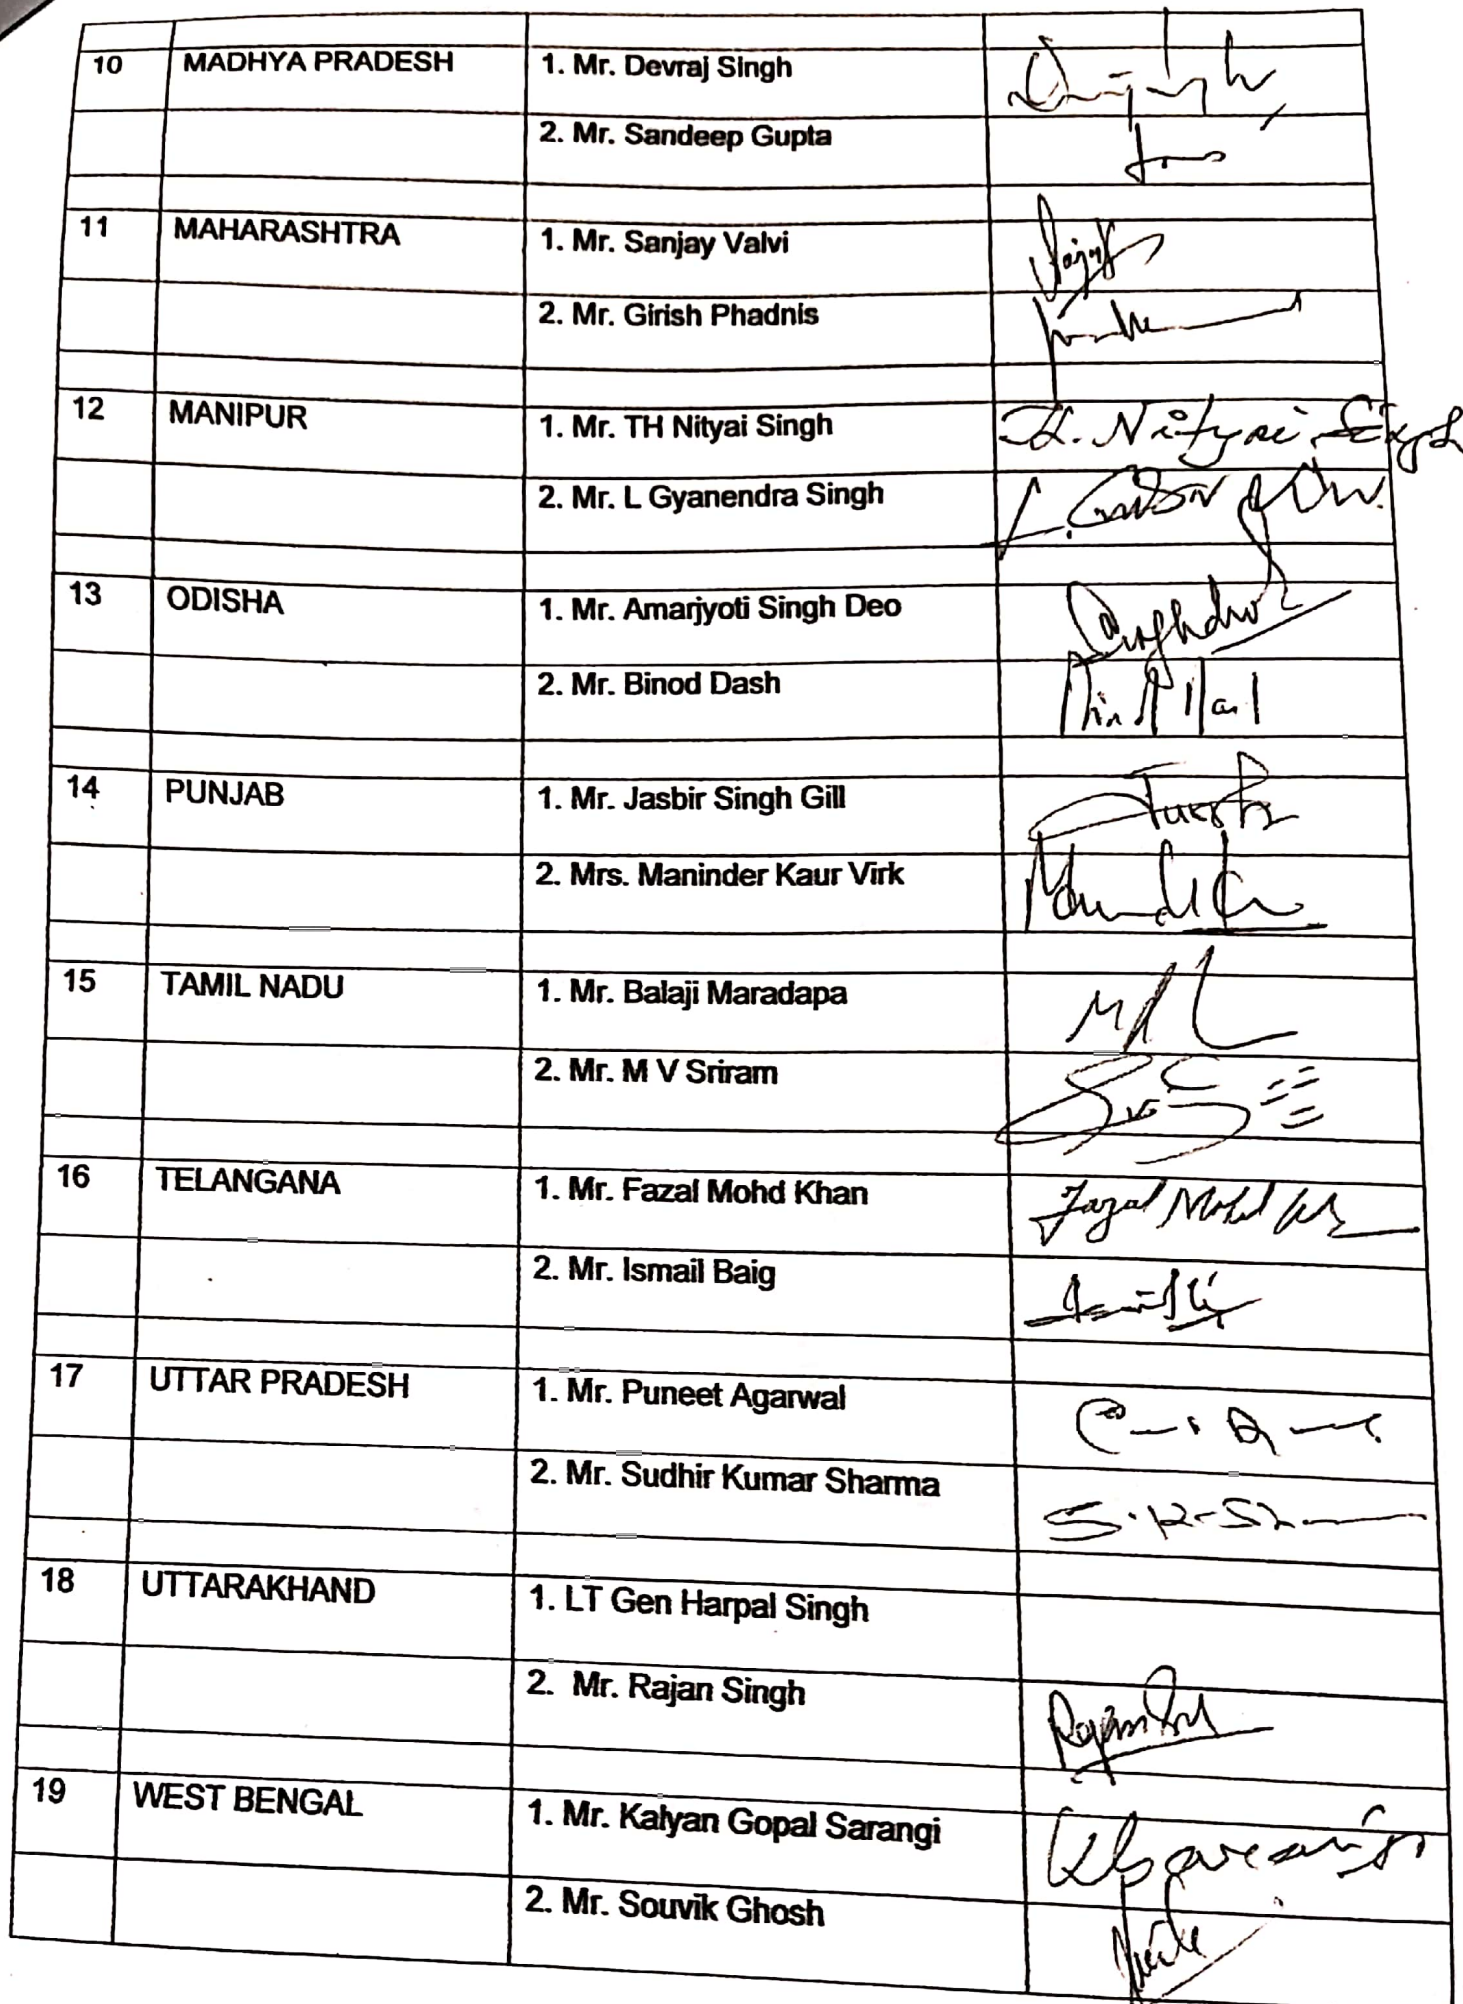 10 MADHYA PRADESH 1. Mr. Devraj Singh
2. Mr. Sandeep Gupta
11 MAHARASHTRA 1. Mr. Sanjay Valvi
2. Mr. Girish Phadnis
12 MANIPUR 1. Mr. TH Nityai Singh Th. Nityai Singh
2. Mr. L Gyanendra Singh
13 ODISHA 1. Mr. Amarjyoti Singh Deo
2. Mr. Binod Dash
14 PUNJAB 1. Mr. Jasbir Singh Gill
2. Mrs. Maninder Kaur Virk
15 TAMIL NADU 1. Mr. Balaji Maradapa
2. Mr. M V Sriram
16 TELANGANA 1. Mr. Fazal Mohd Khan Fazal Mohd
2. Mr. Ismail Baig
17 UTTAR PRADESH 1. Mr. Puneet Agarwal
2. Mr. Sudhir Kumar Sharma
18 UTTARAKHAND 1. LT Gen Harpal Singh
2. Mr. Rajan Singh
19 WEST BENGAL 1. Mr. Kalyan Gopal Sarangi
2. Mr. Souvik Ghosh